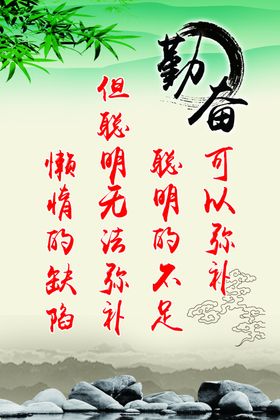 勤奋
可以弥补
聪明的不足
但聪明无法弥补
懒惰的缺陷